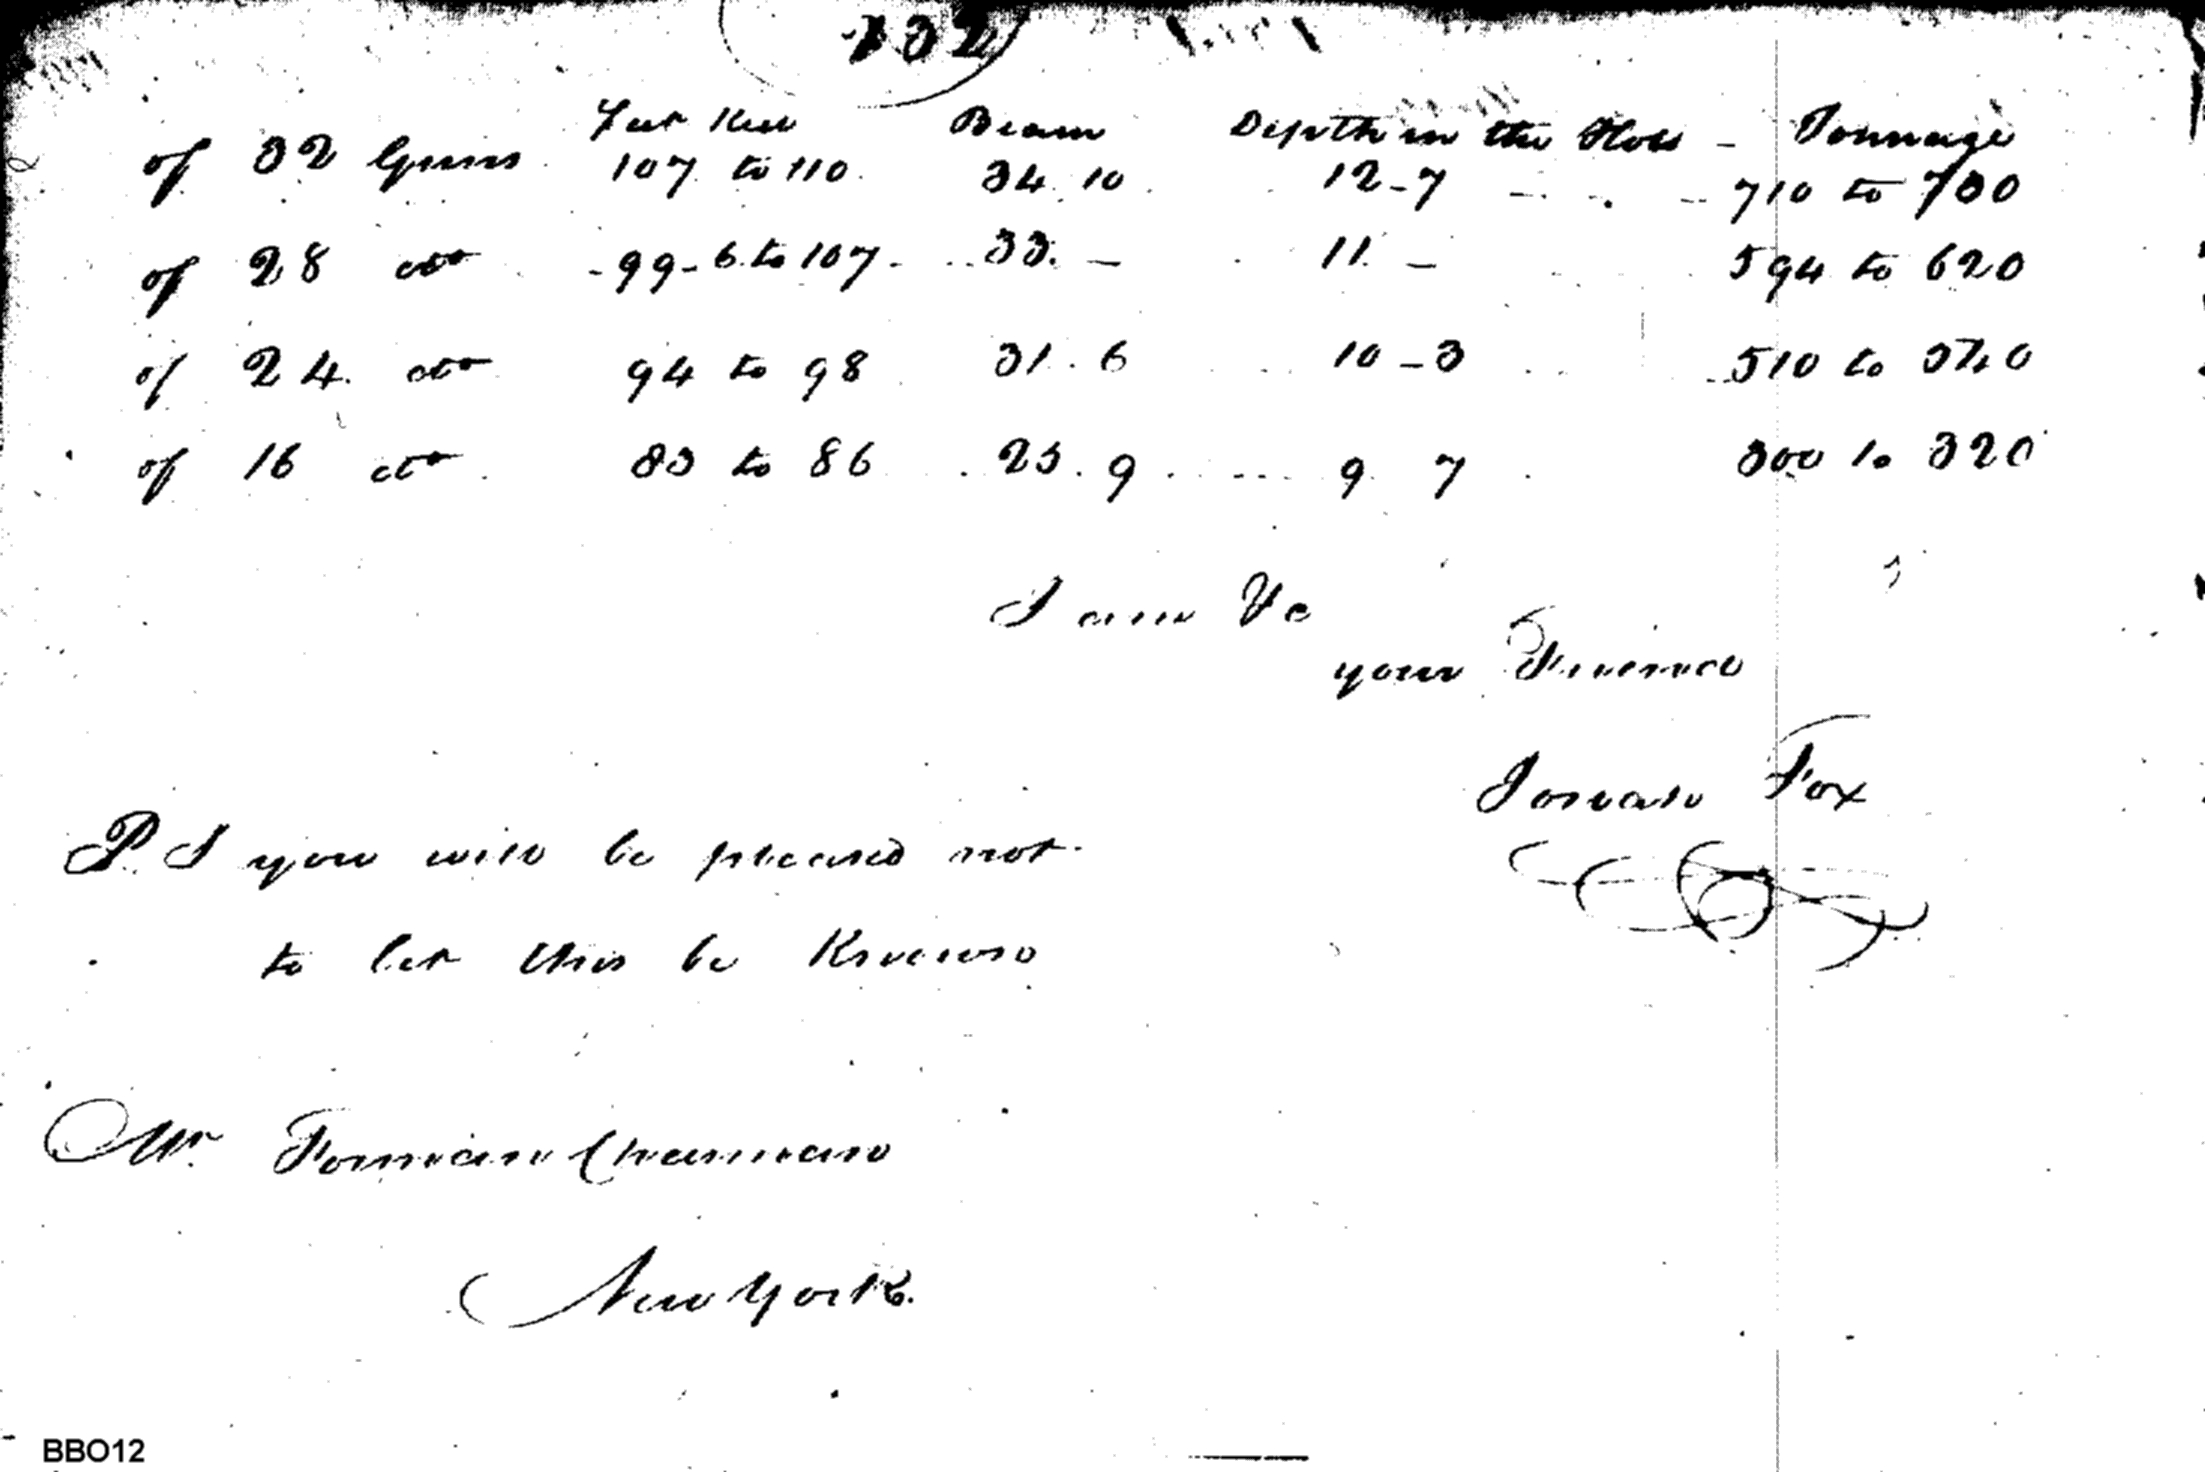 132
Feet Keel Beam Depth in the Hold - Tonnage
of 32 Guns 107 to 110 34. 10 12-7 710 to 730
of 28 do - 99-6 to 107 - 33. - 11. - 594 to 620
of 24. do 94 to 98 31. 6 10-3 510 to 540
of 16 do 83 to 86 25. 9 9 7 300 to 320
I am &c
your Friend
Josiah Fox
P.S you will be pleased not
to let this be Known
Mr. Forman Cheeseman
New York.
BBO12